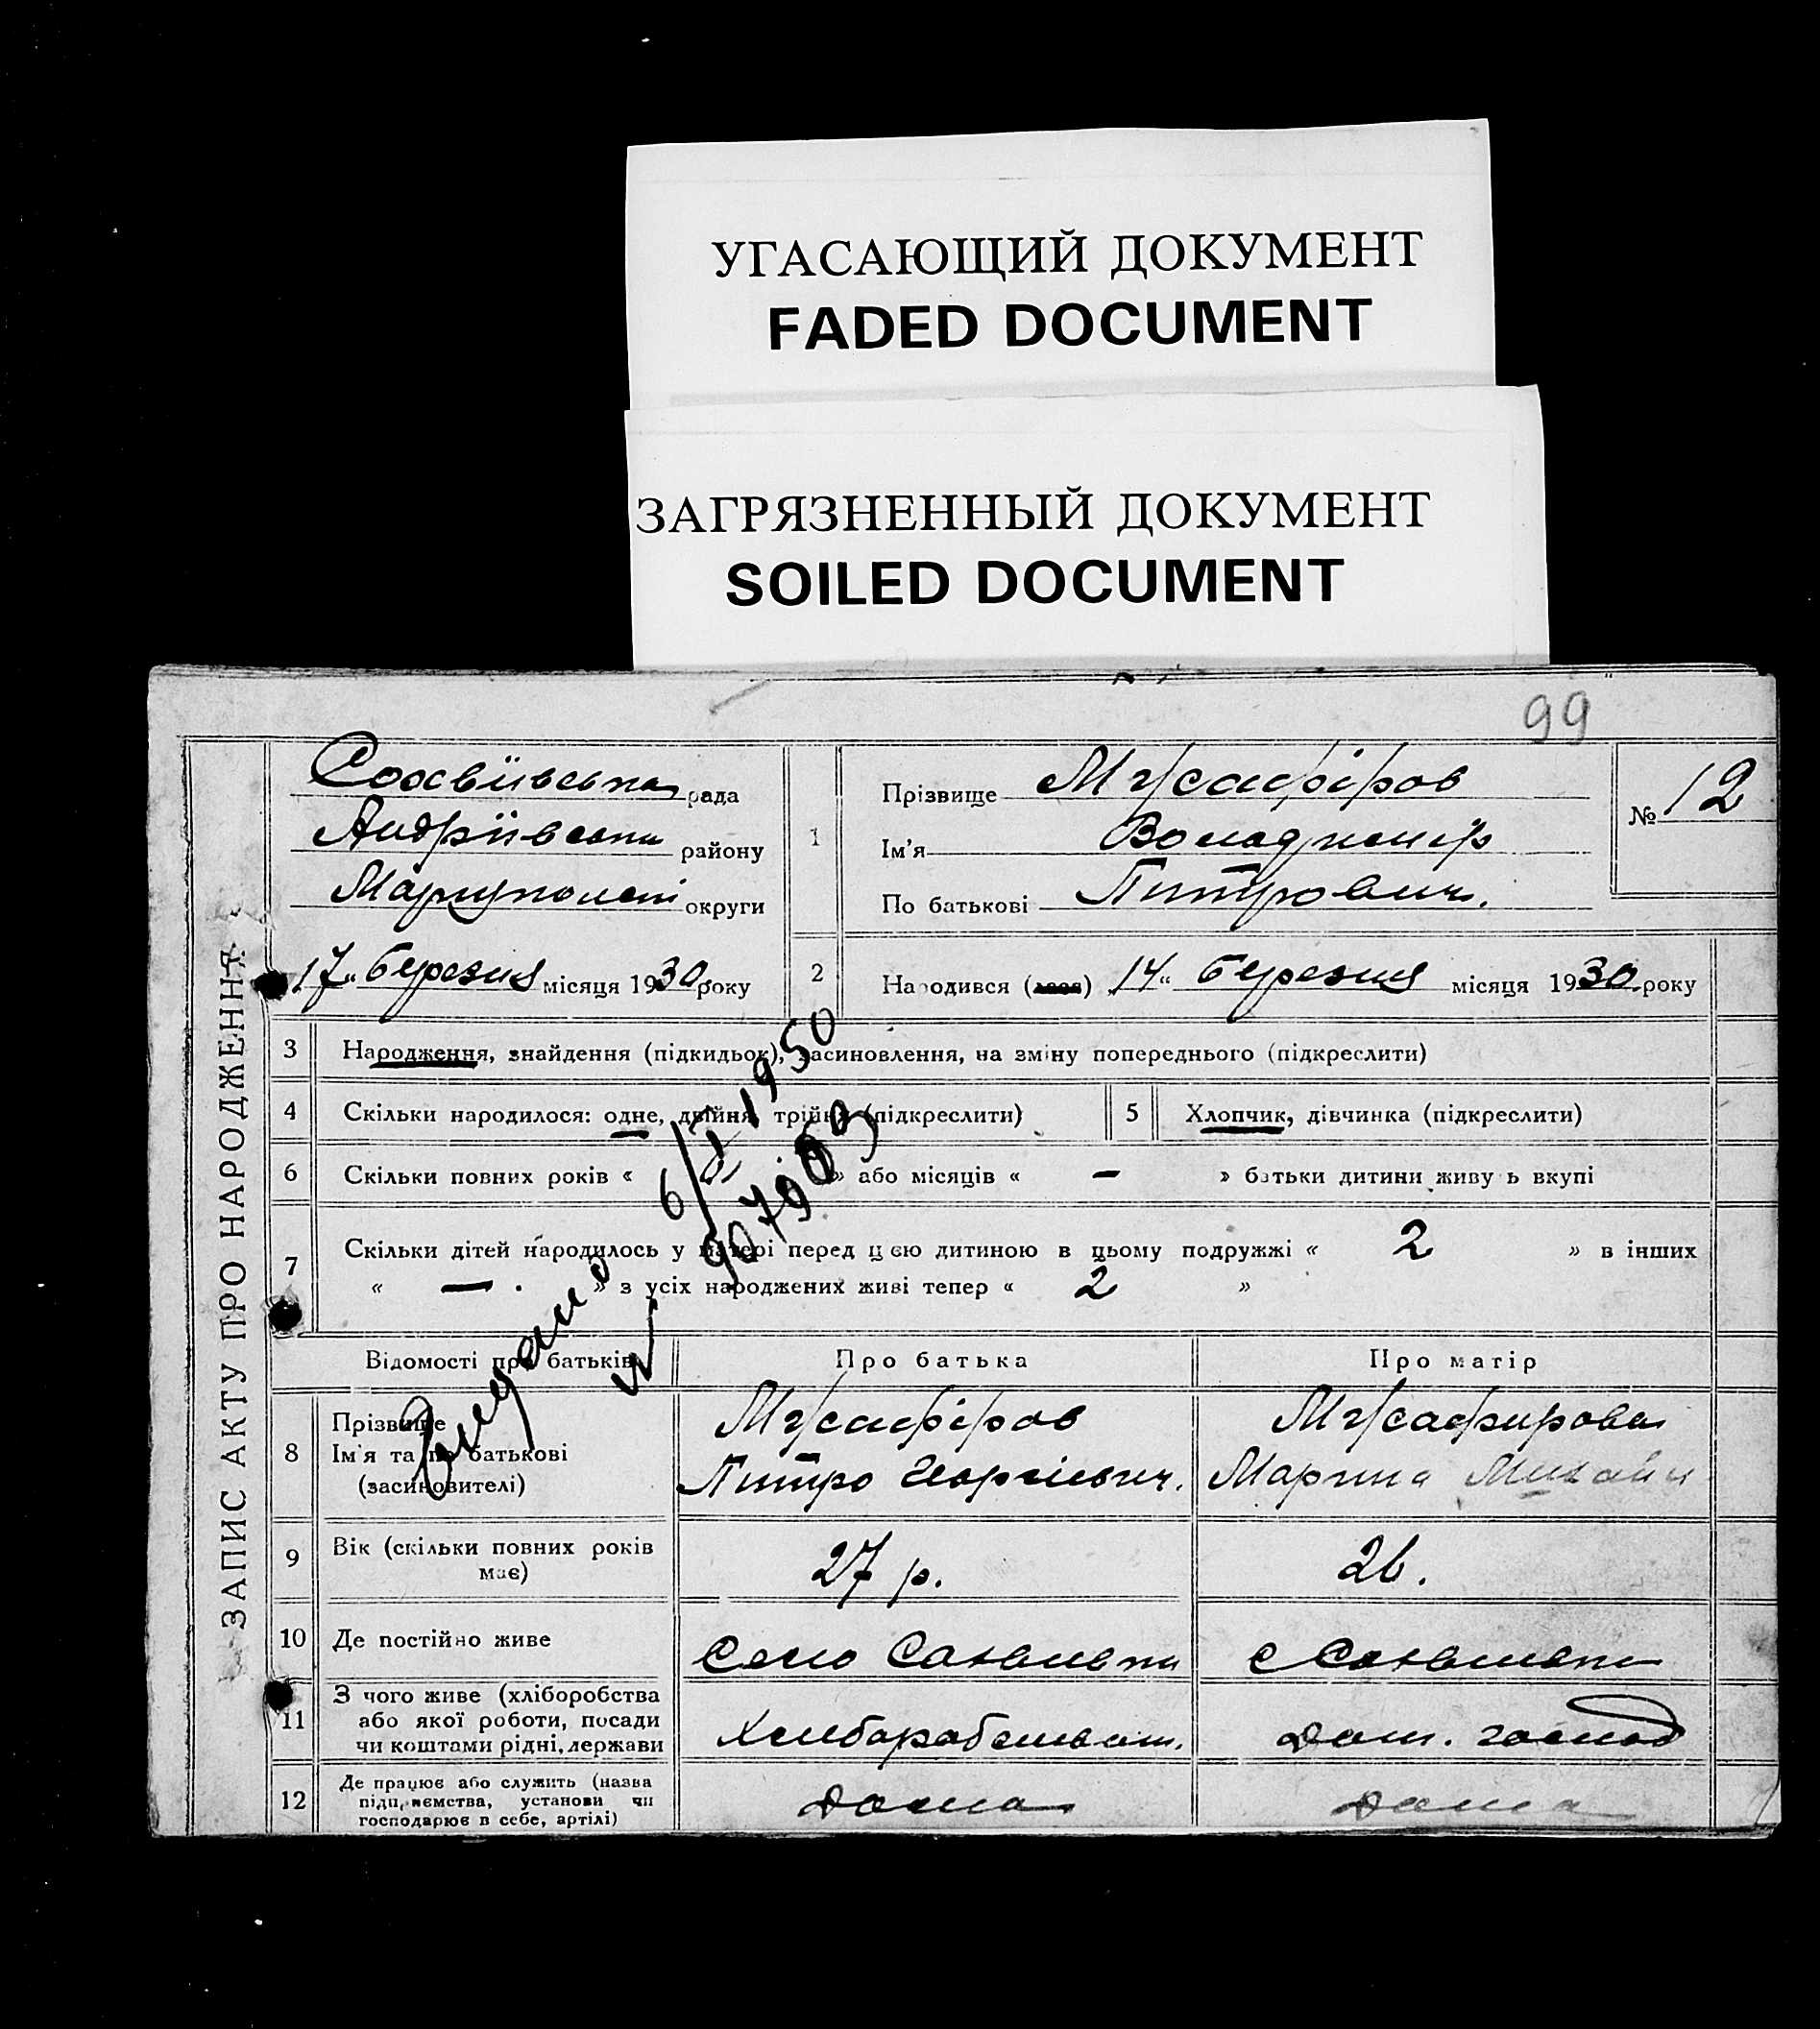 УГАСАЮЩИЙ ДОКУМЕНТ
FADED DOCUMENT
ЗАГРЯЗНЕННЫЙ ДОКУМЕНТ
SOILED DOCUMENT
99
ЗАПИС АКТУ ПРО НАРОДЖЕННЯ
рада
Андріївськ району
округи
17 „ березня місяця 1930 року
1
Прізвище Мусафіров
Ім'я Володимир
По батькові Питрович.
№ 12
2 Народився (лась) 14 „ березня місяця 1930 року
3 Народження, знайдення (підкидьок), засиновлення, на зміну попереднього (підкреслити)
4 Скільки народилося: одне, двійня, трійня (підкреслити)
5 Хлопчик, дівчинка (підкреслити)
6 Скільки повних років « » або місяців « — » батьки дитини живуть вкупі
7 Скільки дітей народилось у матері перед цією дитиною в цьому подружжі « 2 » в інших
« — » з усіх народжених живі тепер « 2 »
1950
Відомості про батьків
Про батька
Про матір
8 Прізвище
Ім'я та по батькові
(засиновителі)
Мусафіров
Питро Георгієвич.
Мусафирова
Марина Михайл
9 Вік (скільки повних років
має)
27 р.
26.
10 Де постійно живе
Село
с
11 З чого живе (хліборобства
або якої роботи, посади
чи коштами рідні, держави
Дом. господ
12 Де працює або служить (назва
підприємства, установи чи
господарює в себе, артілі)
Дома
Дома